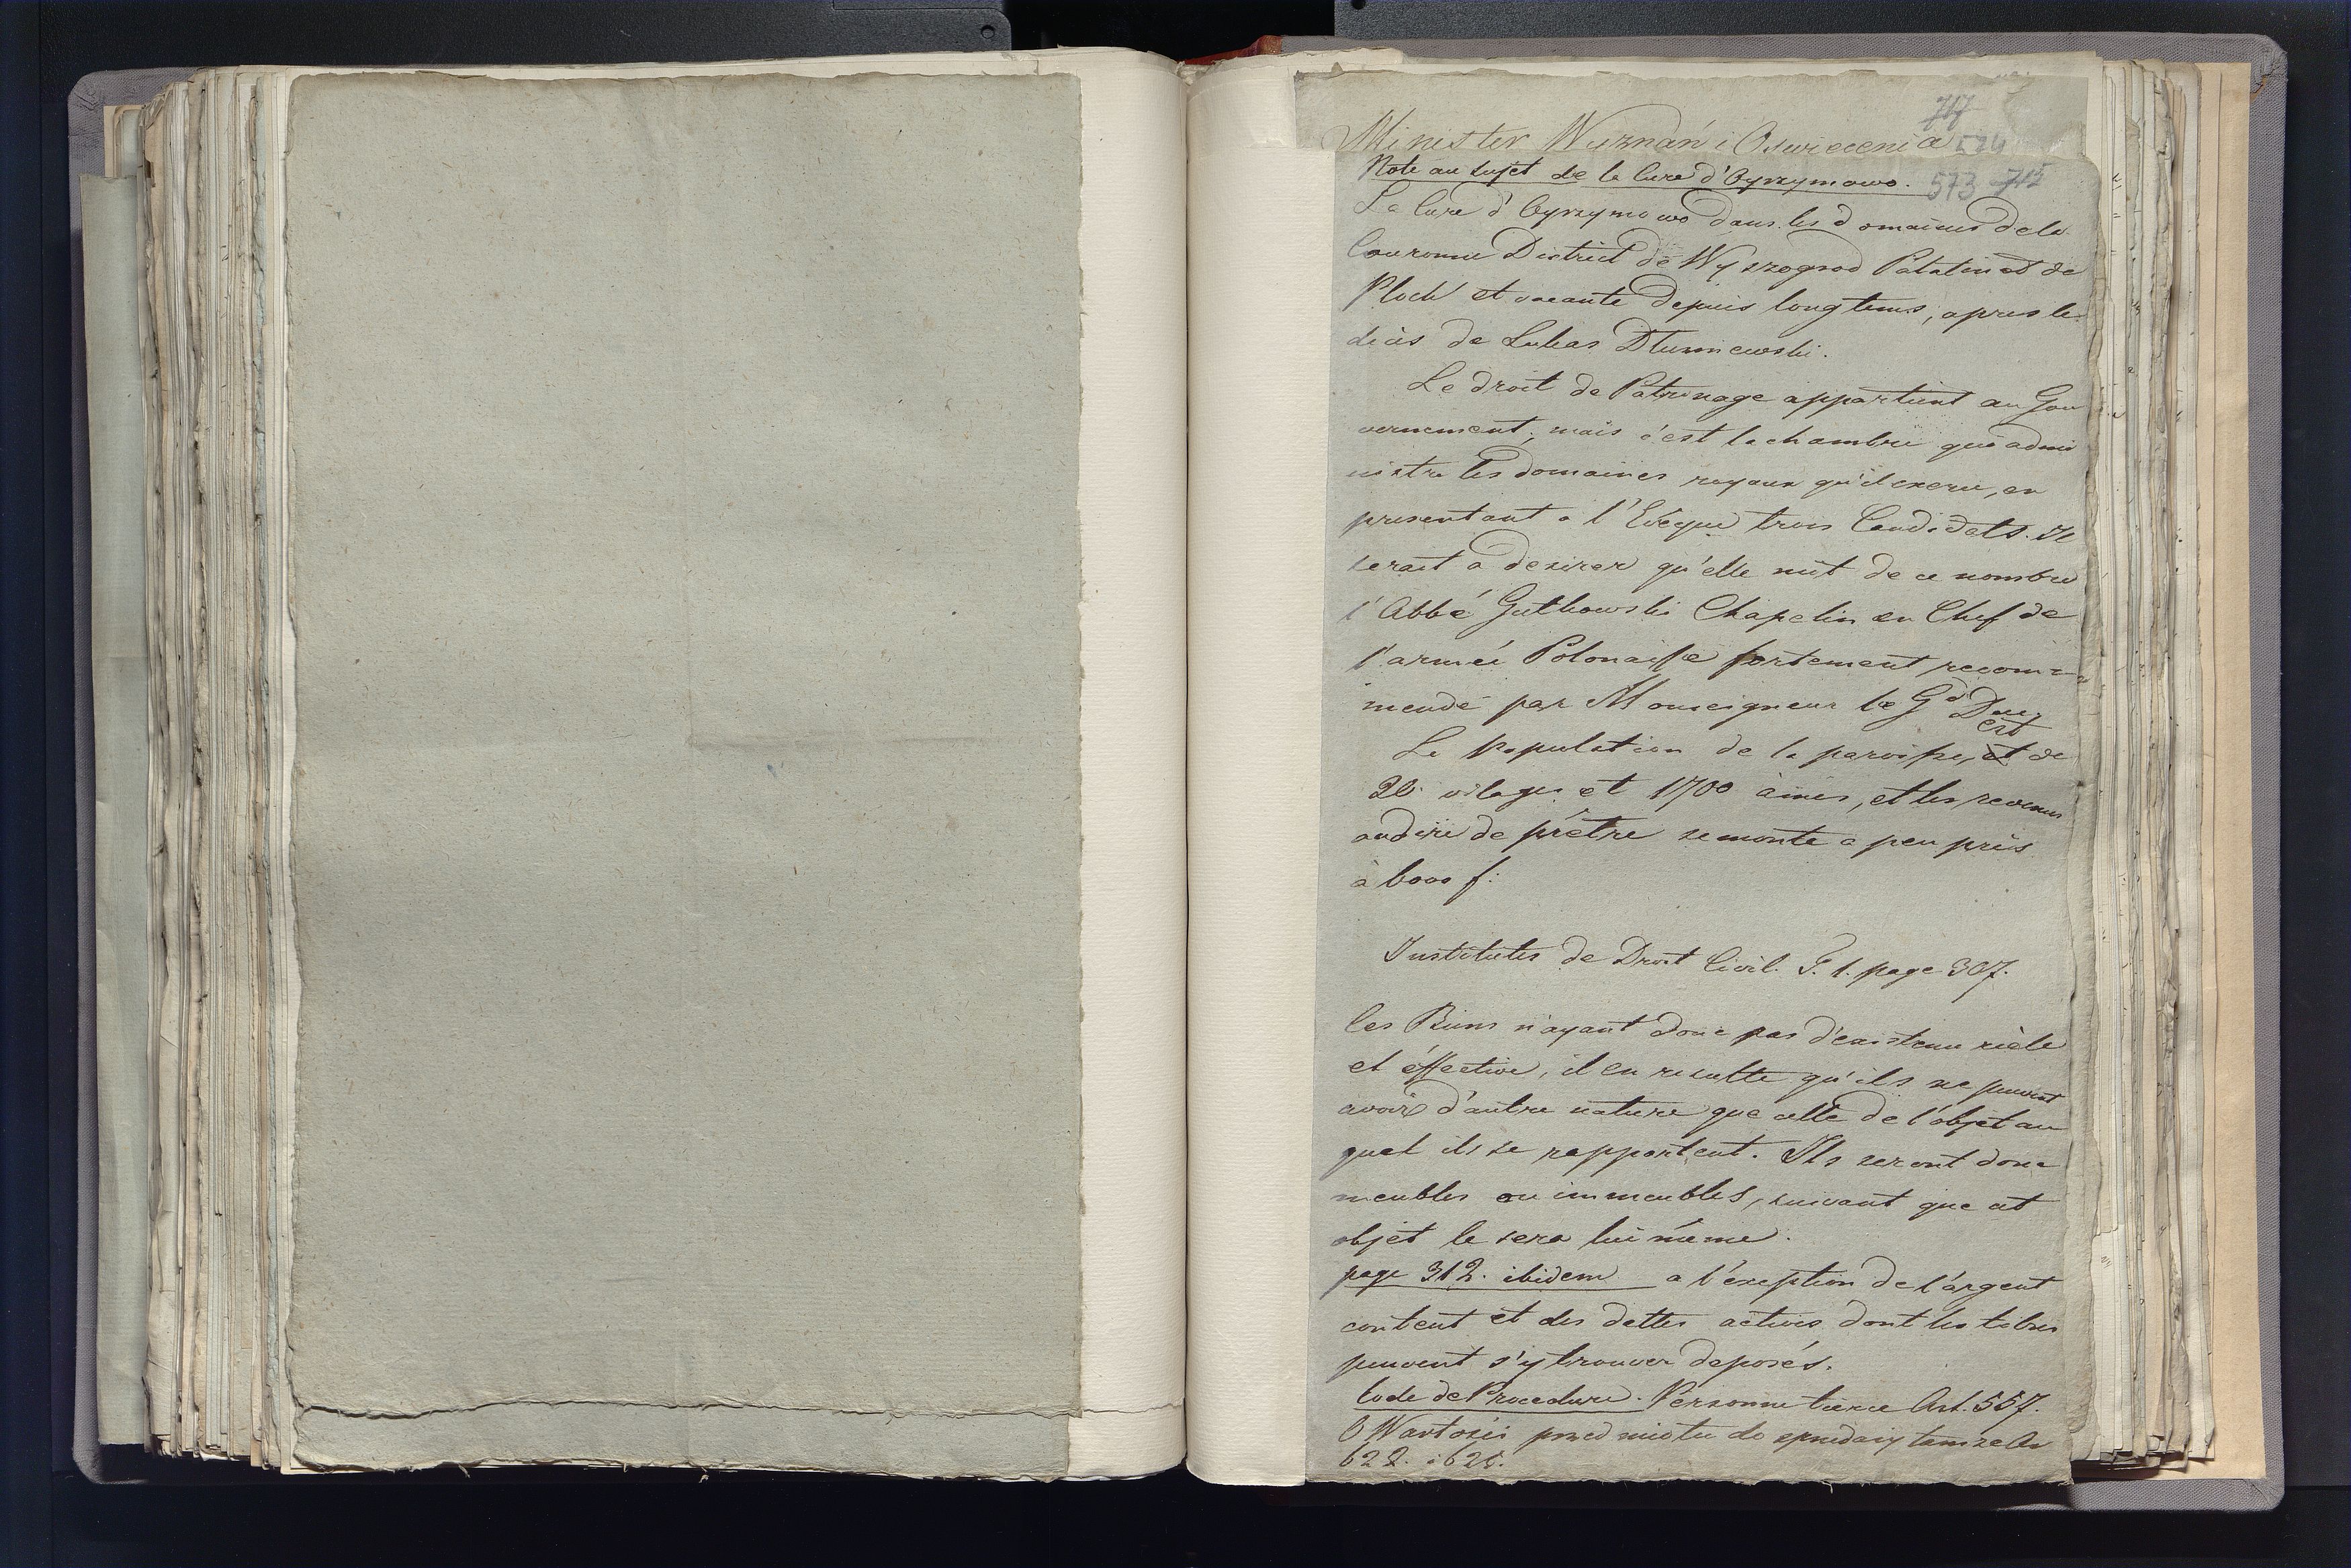 717
Minister Wyznań i Oswiecenia 574
Note au sujet de la Cure d'Cyrzymowo. 573 712
La Cure d'Cyrzymowo dans les domaines de la
Couronne District de Wyszogrod Palatinat de
Plock et vacante depuis longtems, apres le
decès de Lukas Dłuzniewski.
Le droit de Patronage appartient au Gou
vernement, mais c'est la chambre qui admi
nistre les domaines royaux qu'il exerce, en
presentant a l'Evêque trois Candidats. Il
serait a desirer qu'elle mit de ce nombre
l'Abbé Gutkowski Chapelin en Chef de
l'armée Polonaisse fortement recom=
mendé par Monseigneur le Gd Duc
La Population de la paroisse, et est de
20 vilages et 1700 âmes, et les revenus
audire de prêtre se monte a peu près
à 6000 f:
Institutes de Droit Civil. T. 1. page 307.
les Biens n'ayant donc pas d'existence rèele
et éffective, il en resulte qu'ils ne peuvent
avoir d'autre nature que celle de l'objet au
quel ils se rapportent. Ils seront donc
meubles ou immeubles, suivant que cet
objet le sera lui même.
page 312. ibidem a l'exeption de l'argent
content et des dettes actives dont les
peuvent s'y trouver deposés.
Code de Procedure. Personne tierce Art. 557.
O Wartosci przedmiotu do sprzedazy tamze Ar
622. i 625.